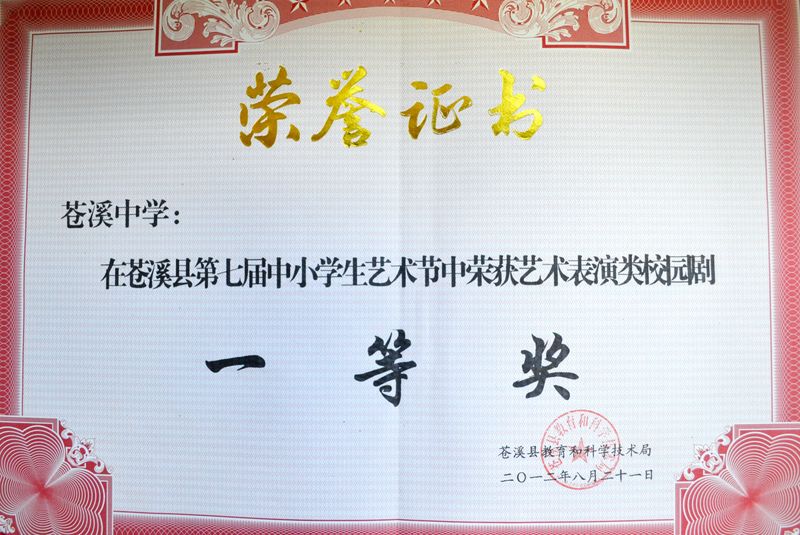 荣誉证书
苍溪中学：
在苍溪县第七届中小学生艺术节中荣获艺术表演类校园剧
一等奖
苍溪县教育和科学技术局
二〇一二年八月二十一日